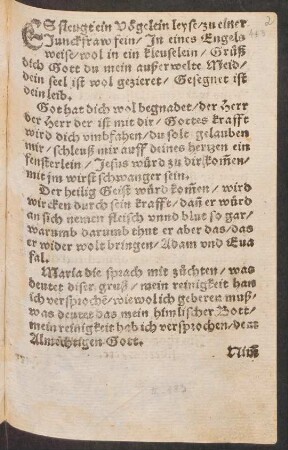 2
ES fleugt ein Vögelein leyse/zu einer
Junckfraw fein/ In eines Engels
weise/wol in ein kleuselein/ Grüß
dich Gott du mein außerwelte Meid/
dein seel ist wol gezieret/ Gesegnet ist
dein leib.
Got hat dich wol begnadet/der Herr
der Herr der ist mit dir/ Gottes krafft
wird dich vmbfahen/du solt gelauben
mir/schleuß mir auff deines hertzen ein
fensterlein/ Jesus würd zu dir kom̃en/
mit jm wirst schwanger sein.
Der heilig Geist würd kom̃en/ wird
wircken durch sein krafft/dañ er würd
an sich nemen fleisch vnnd blut so gar/
warumb darumb thut er aber das/das
er wider wolt bringen/Adam vnd Eua
fal.
Maria die sprach mit züchten/was
deutet diser gruß/ mein reinigkeit han
ich versprochẽ/wie wol ich geberen muß/
was deutet das mein himlischer Bott/
mein reinigkeit hab ich versprochen/dem
Almächtigen Gott.
Nim̃